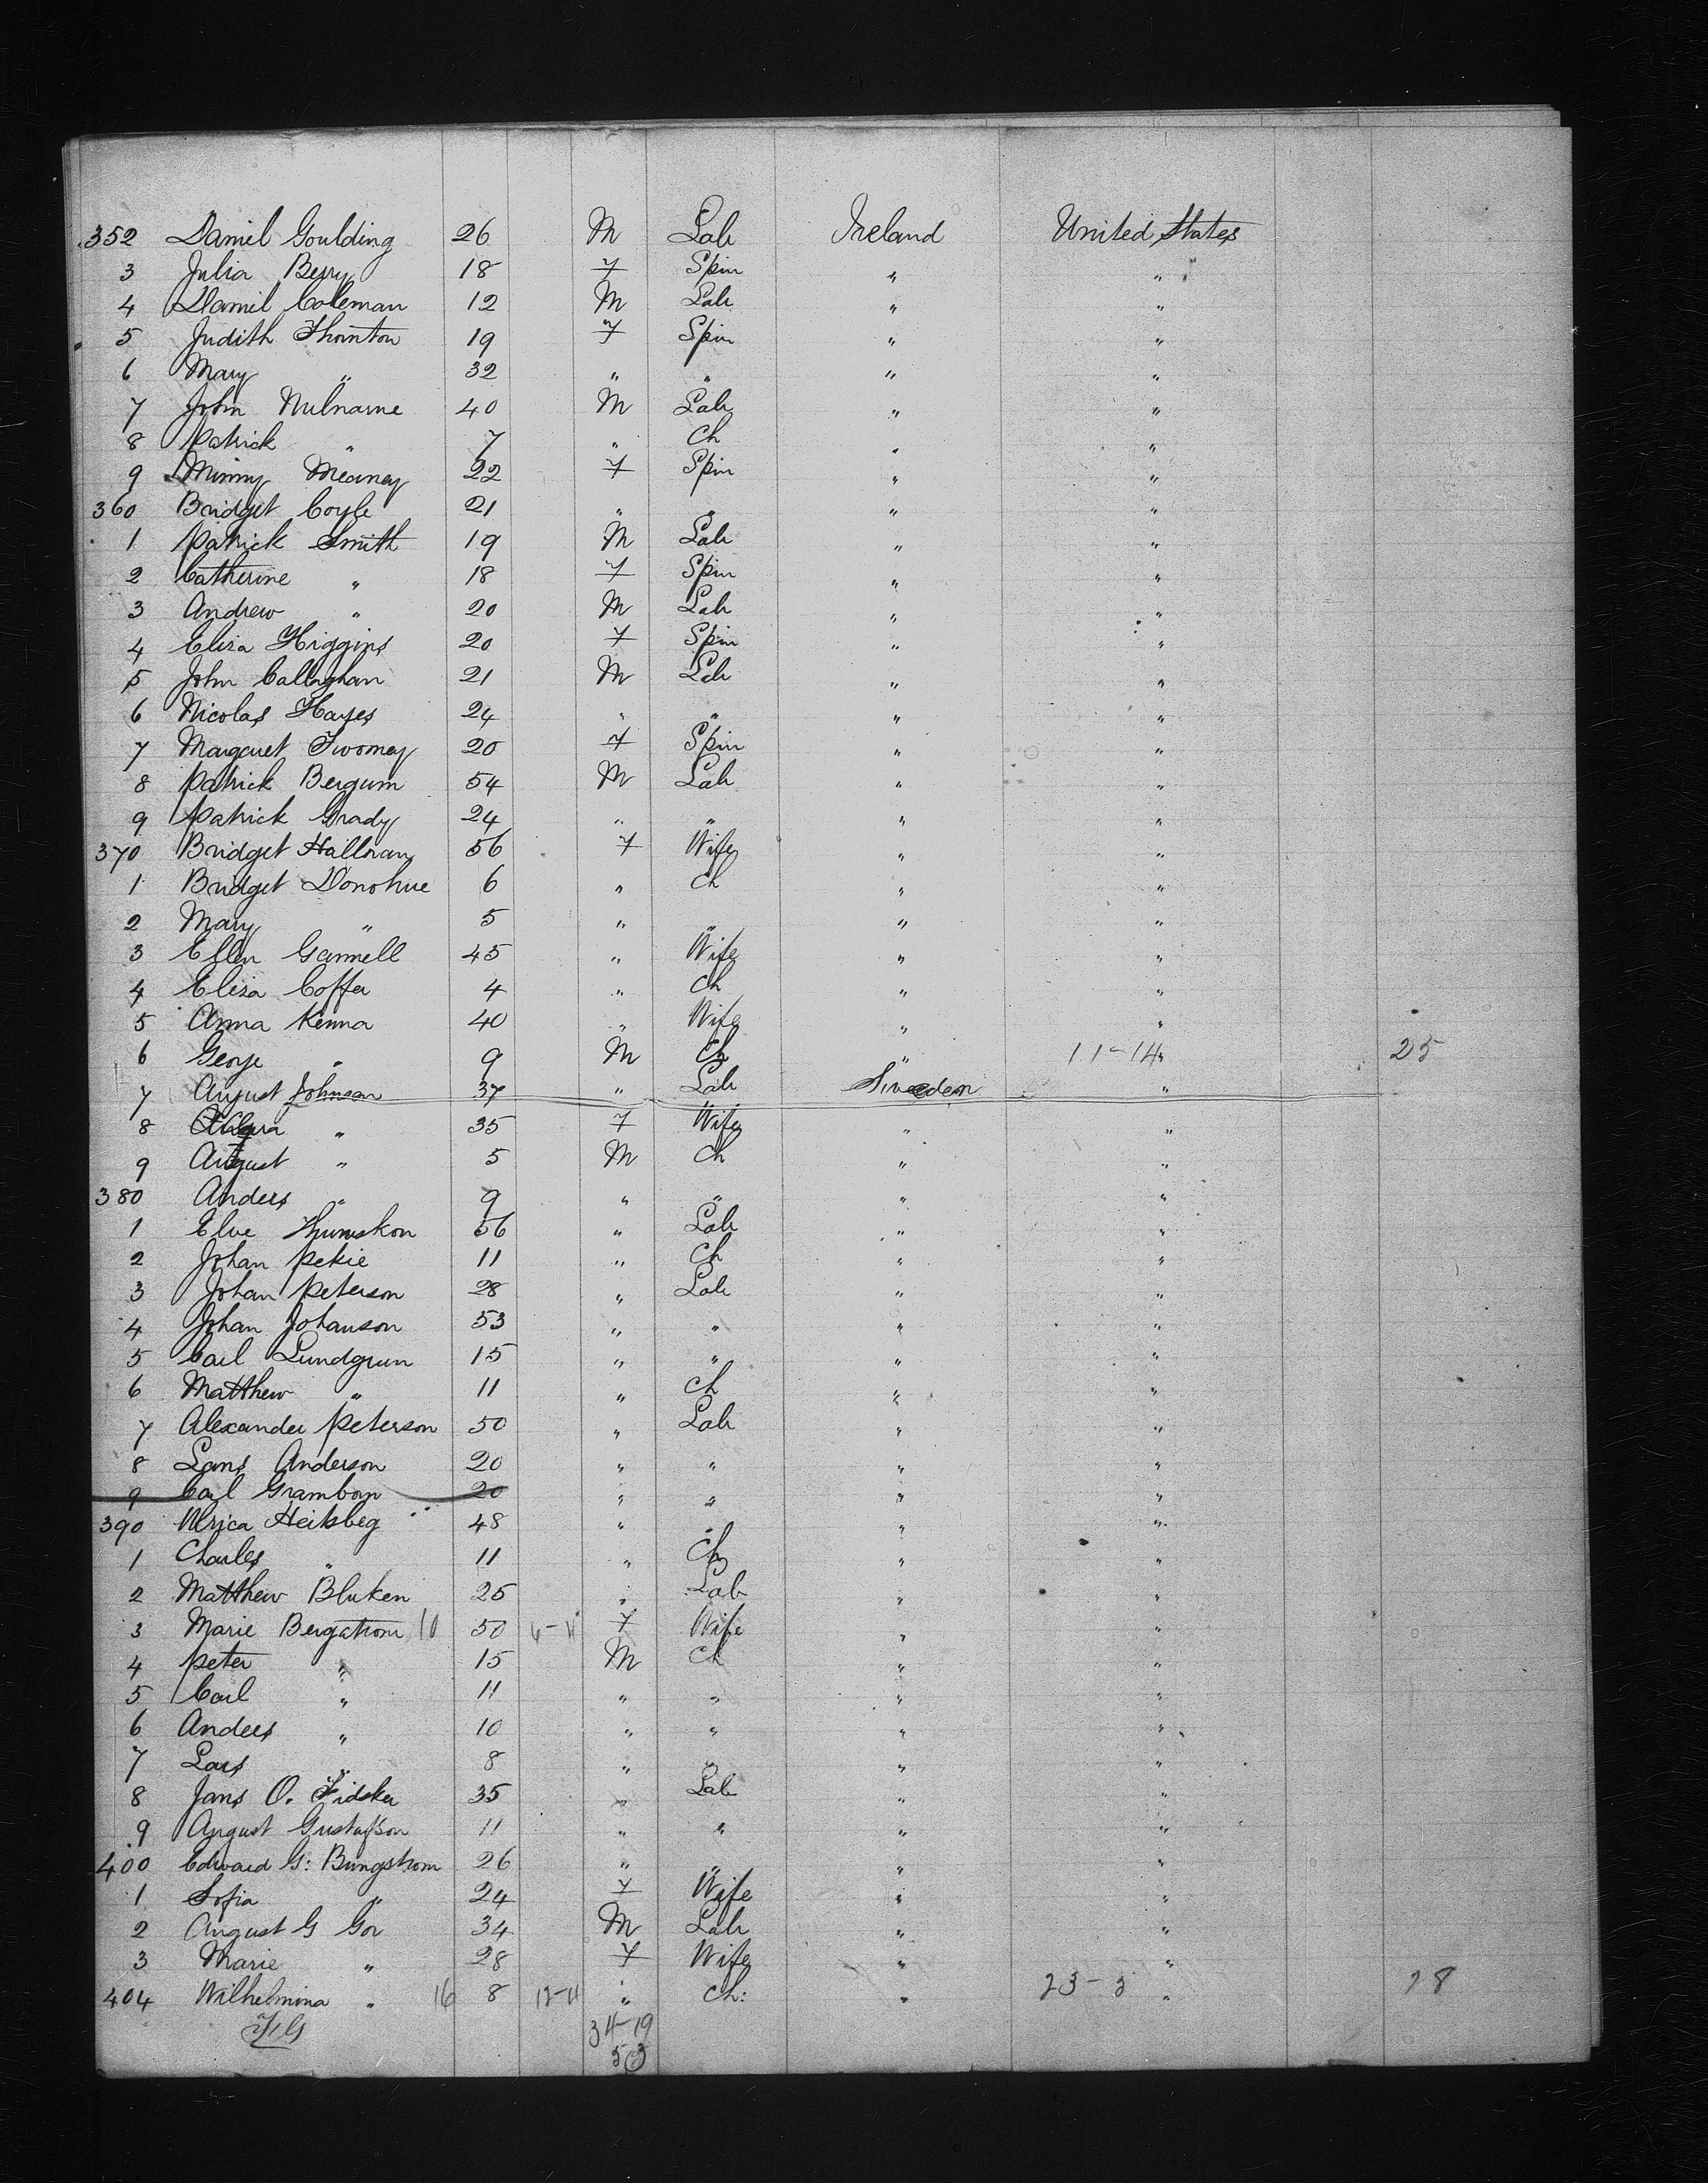 352 Daniel Goulding 26 M Lab Ireland United States
3 Julia Berry 18 F Spin " "
4 Daniel Coleman 12 M Lab " "
5 Judith Thornton 19 F Spin " "
6 Mary " 32 " " " "
7 John Mulnarne 40 M Lab " "
8 Patrick " 7 " Ch " "
9 Minny Meaney 22 F Spin " "
360 Bridget Coyle 21 " " " "
1 Patrick Smith 19 M Lab " "
2 Catherine " 18 F Spin " "
3 Andrew " 20 M Lab " "
4 Eliza Higgins 20 F Spin " "
5 John Callaghan 21 M Lab " "
6 Nicolas Hayes 24 " " " "
7 Margaret Twomey 20 F Spin " "
8 Patrick Bergum 54 M Lab " "
9 Patrick Grady 24 " " " "
370 Bridget Halloran 56 F Wife " "
1 Bridget Donohue 6 " Ch " "
2 Mary " 5 " " " "
3 Ellen Gannell 45 " Wife " "
4 Eliza Coffer 4 " Ch " "
5 Anna Kenna 40 " Wife " "
6 George " 9 M Ch " 11-14 " 25
7 August Johnson 37 " Lab Sweden "
8 " 35 F Wife " "
9 August " 5 M Ch " "
380 Anders " 9 " " " "
1 Elve 56 " Lab " "
2 Johan Pekie 11 " Ch " "
3 Johan Peterson 28 " Lab " "
4 Johan Johanson 53 " " " "
5 Carl Lundgrun 15 " " " "
6 Matthew " 11 " Ch " "
7 Alexander Peterson 50 " Lab " "
8 Lans Anderson 20 " " " "
9 Carl Grambom 20 " " " "
390 Ulrica Heitsbeg 48 " " " "
1 Charles " 11 " Ch " "
2 Matthew Bluken 25 " Lab " "
3 Marie Bergstrom 10 50 6-4 F Wife " "
4 Peter " 15 M Ch " "
5 Carl " 11 " " " "
6 Anders " 10 " " " "
7 Lars " 8 " " " "
8 Jans O. Fidsker 35 " Lab " "
9 August Gustafson 11 " " " "
400 Edward G: Bungstrom 26 " " " "
1 Sofia " 24 F Wife " "
2 August G Gor 34 M Lab " "
3 Marie " 28 F Wife " "
404 Wilhelmina " 16 8 12-4 " Ch: " 23-3 " 28
34-19
53